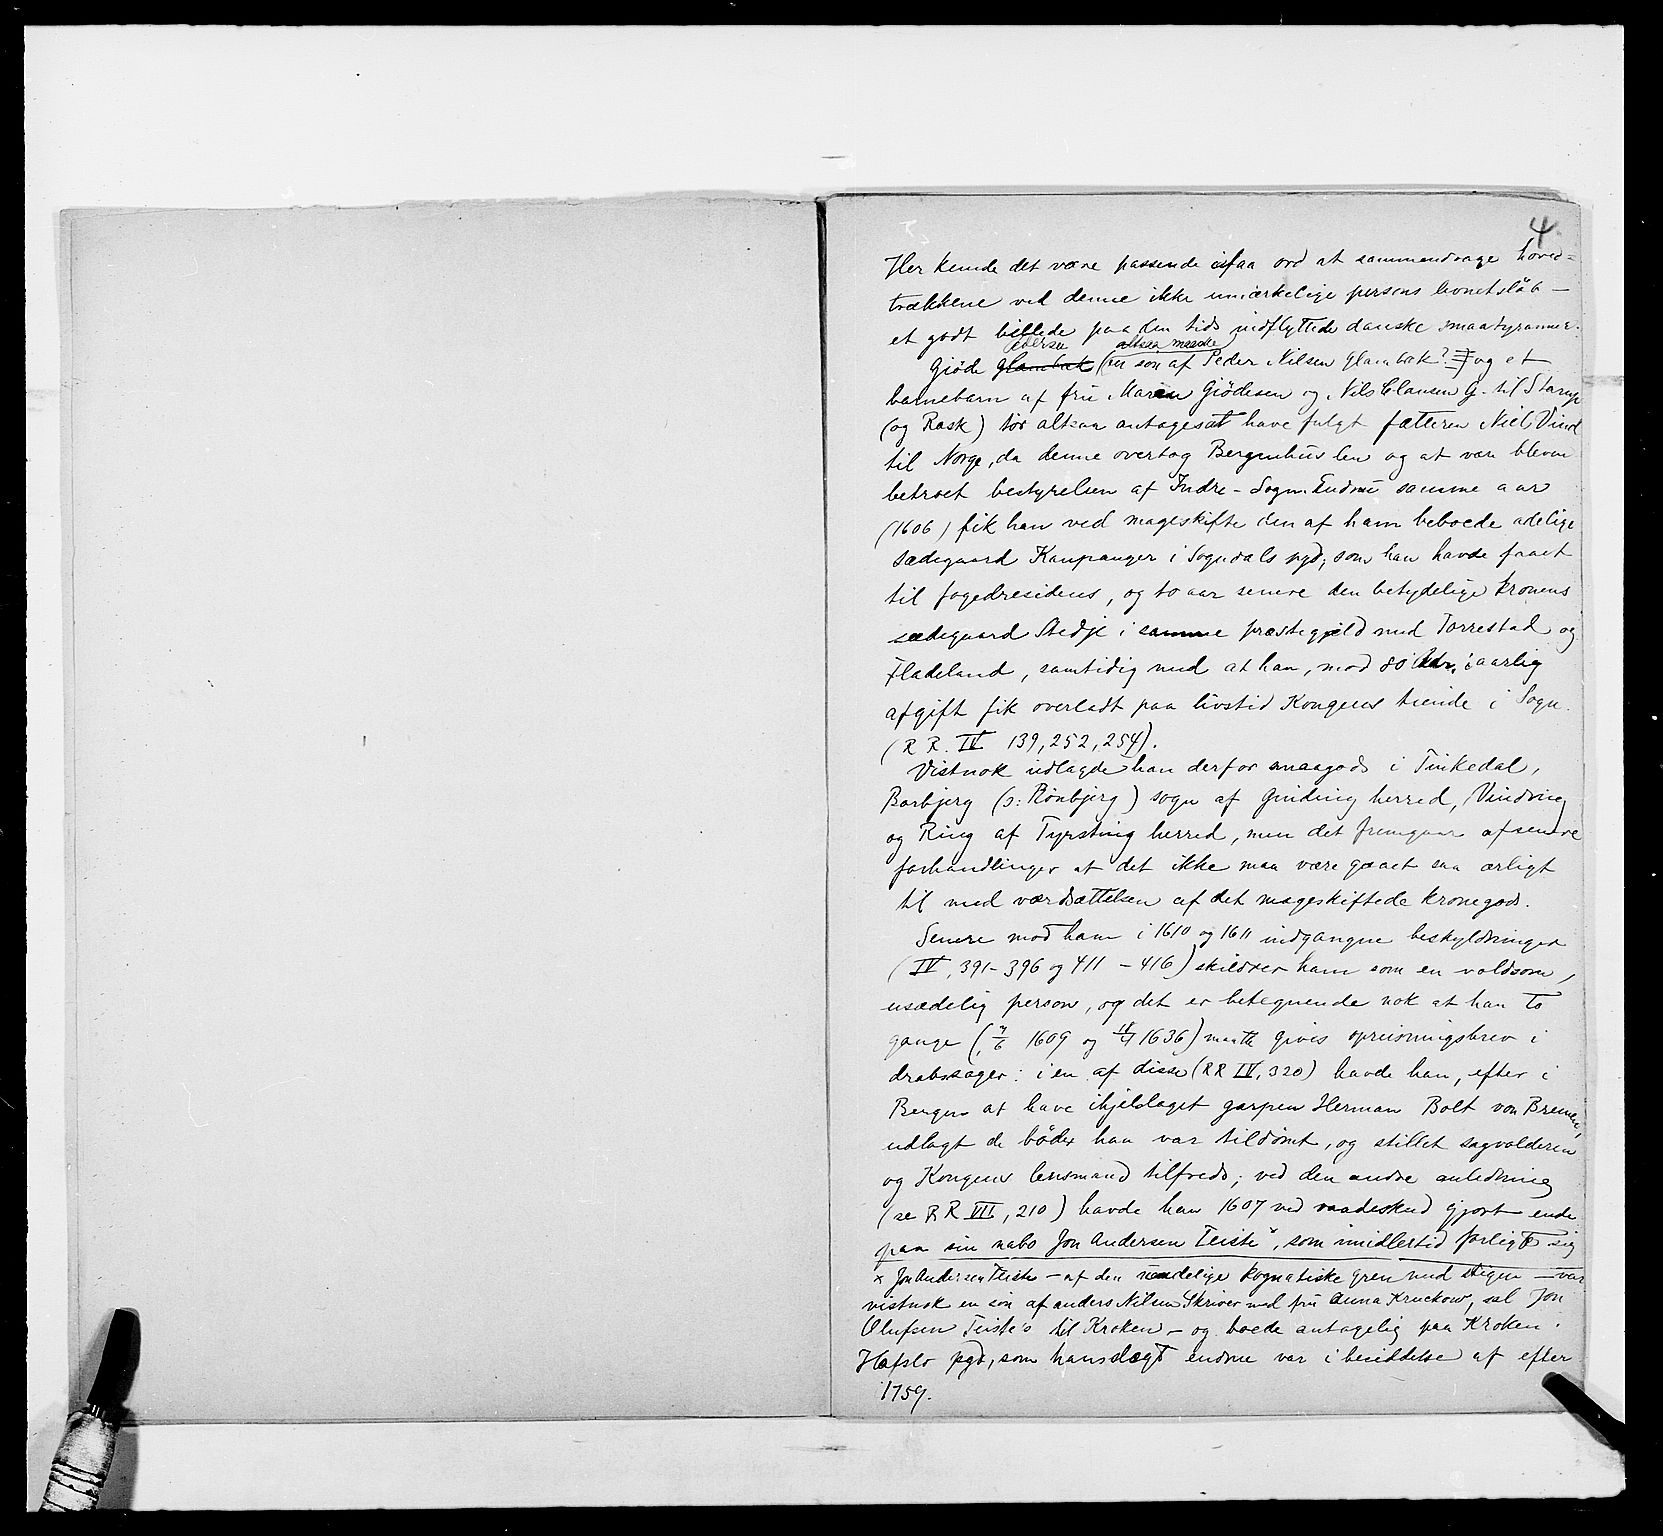 4
Her kunde det være passende i faa ord at sammendrage hoved=
trækkene ved denne ikke umærkelige persons levnetsløb –
et godt billede paa den tids indflyttede danske smaatyranner.
altsaa maaske
Giøde Glambæk (en søn af Peder Nilsen Glambæk? og et
barnebarn af fru Maren Giödesen og Nils Clausen G. til Starup
(og Rask) tør altsaa antages at have fulgt fætteren Niels Vind
til Norge, da denne overtog Bergenhus len og at være bleven
betroet bestyrelsen af Indre-Sogn. Endnu samme aar
(1606) fik han ved mageskifte den af ham beboede adelige
sædegaard Kaupanger i Sogndals pgd, som han havde faaet
til fogedresidens, og to aar senere den betydelige kronens
sædegaard Stedje i samme præstegjeld med Torrestad og
Fladeland, samtidig med at han, mod 80 i aarlig
afgift fik overladt paa livstid Kongens tiende i Sogn.
(R R. IV 139, 252, 254).
Vistnok udlagde han derfor smaagods i Tinkedal,
Borbjerg (ɔ: Rönbjerg) sogn af Ginding herred, Vinding
og Ring af Tyrsting herred, men det fremgaar af senere
forhandlinger at det ikke maa være gaaet saa ærligt
til med værdsættelsen af det mageskiftede kronegods.
Senere mod ham i 1610 og 1611 indgangne beskyldninger
(IV, 391–396 og 411–416) skildrer ham som en voldsom,
usædelig person, og det er betegnende nok at han to
gange ( 1609 og 1636) maatte gives opreisningsbrev i
drabssager: i en af disse (RR IV, 320) havde han, efter i
Bergen at have ihjelslaget garpen Herman Bolt von Bremen,
udlagt de bøder han var tildømt, og stillet sagvolderen
og Kongens lensmand tilfreds; ved den andre anledning
(se R R VII, 210) havde han 1607 ved vaadeskud gjort ende
paa sin nabo Jon Andersen Teiste x, som imidlertid forligte sig
x Jon Andersen Teiste – af den uendelige kognatiske gren med stigen – var
vistnok en søn af Anders Nilsen Skriver med fru Anna Kruckow, sal Jon
Olufsen Teiste's til Kroken – og boede antagelig paa Kroken i
Hafslo pgd, som hans slægt endnu var i besiddelse af efter
1759.